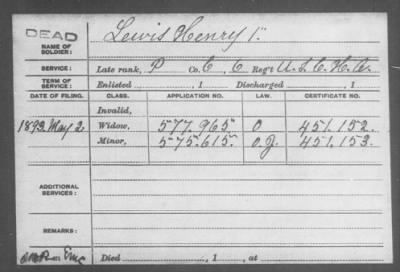 DEAD
NAME OF SOLDIER: Lewis Henry
SERVICE: Late rank, P Co. E, 6 Reg't U.S.C.H.A.
TERM OF SERVICE: Enlisted , 1 Discharged , 1
DATE OF FILING. CLASS. APPLICATION NO. LAW. CERTIFICATE NO.
Invalid,
1893 May 2 Widow, 577.965 O 451.152.
Minor, 575.615. O.J. 451.153.
ADDITIONAL SERVICES:
REMARKS:
Died , 1 , at